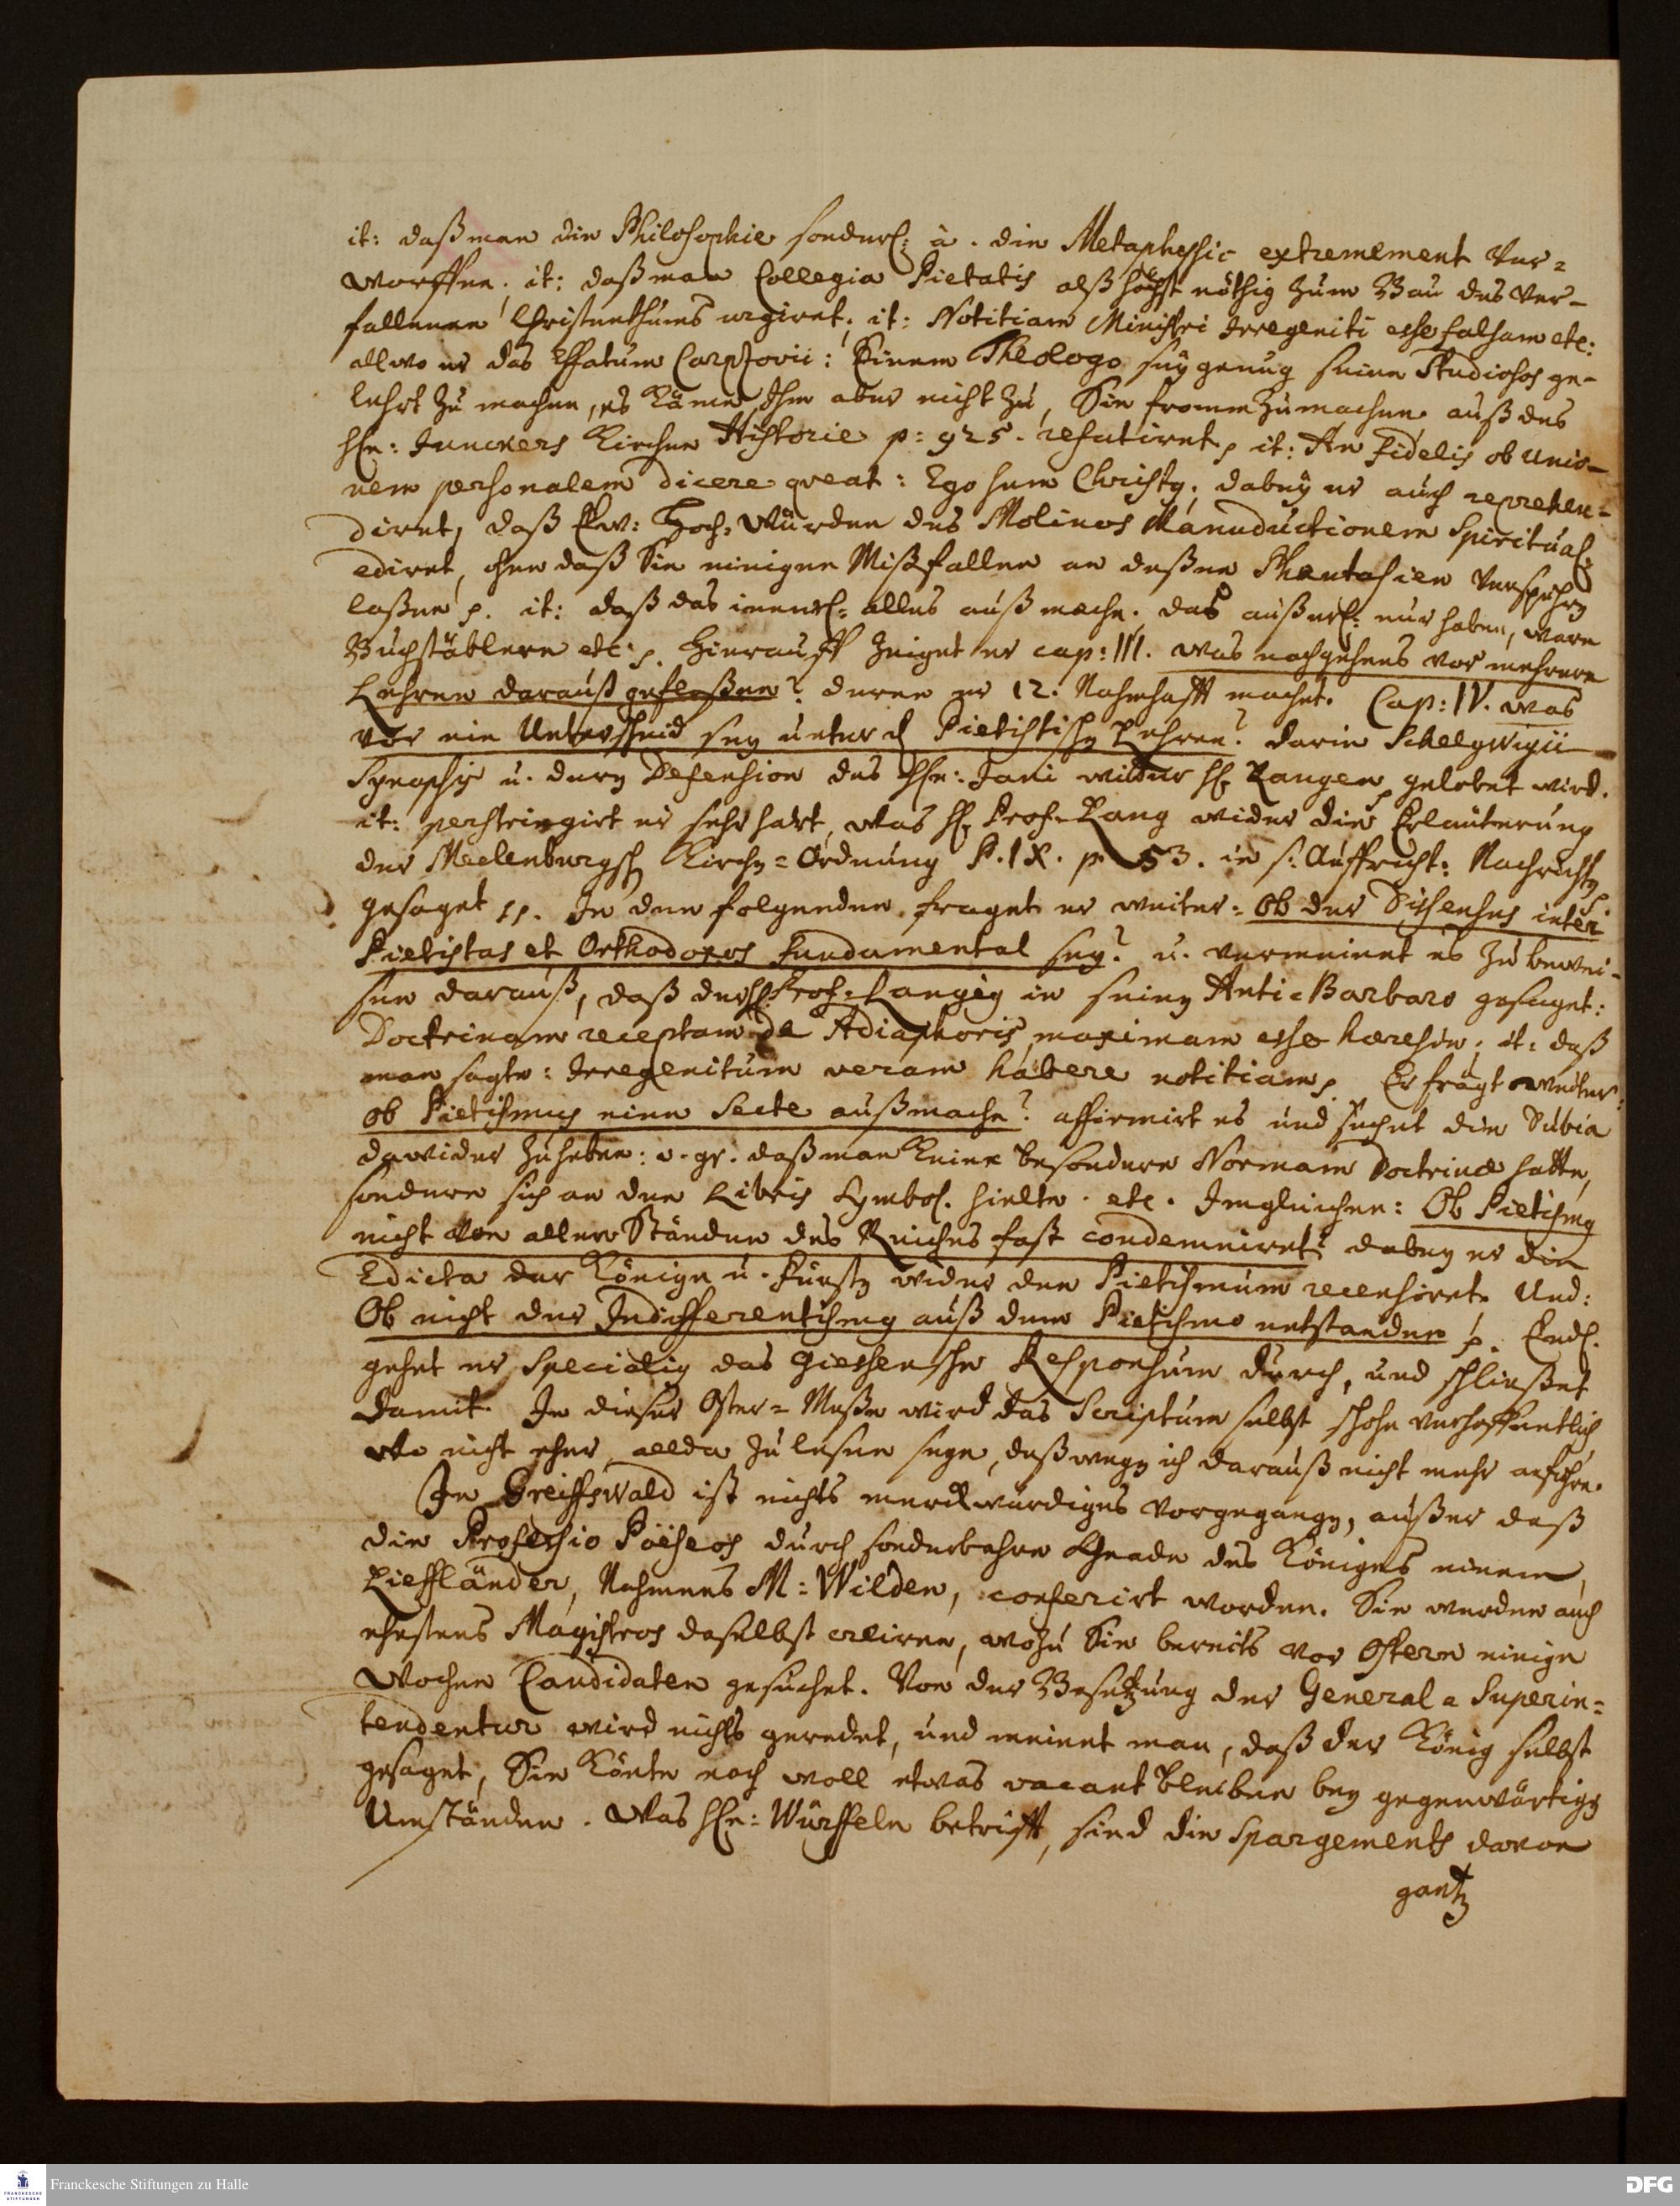 it: daß man die Philosophie sonderl: à. die Metaphysic extremement ver=
worffen; it: daß man Collegia Pietatis alß höchst nöthig zum Bau des ver-
fallenen Christenthums urgiret; it: Notitiam Ministri irregeniti esse falsam etc:
allwo er das Effatum Carpzovii: Einem Theologo sey genug seine Studiosos ge-
lehrt zu machen, es käme Ihm aber nicht zu, Sie fromm zu machen auß des
HEn: Junckers Kirchen Historie p: 925. refutiret, it: An Fidelis ob unio-
nem personalem dicere queat: Ego sum Christus; dabey er auch reprehen-
diret, daß Ew: Hoch-Würden des Molinos Manuductionem Spiritual:
ediret, ohne daß Sie einigen Mißfallen an deßen Phantasien verspühren
laßen p. it: daß das innerl: alles auß mache; das äußerl: nur haben, wären
Buchstäblern etc: p. Hierauff zeiget er cap: III. was nachgehens vor mehrere
Lehren darauß geflossen? deren er 12. Nahmhafft machet. Cap: IV. was
vor ein Unterscheid sey unter d Pietistischen Lehren? darin Schelgwigii
Synopsis u. deren Defension des HEn: Jani wieder H Langen gelobet wird.
it: perstringirt er sehr hart, was H Prof. Lang wider die Erläuterung
der Meclenburgsch Kirchen=Ordnung P. IX. p 53. in s: Auffricht: Nachrichten
gesaget pp. In den folgenden fraget er weiter: Ob der Dissensus inter
Pietistas et Orthodoxos fundamental sey? u. vermeinet es zu bewei-
sen darauß, daß der H Prof: Langius in seinen Anti-Barbaro gesaget:
Doctrinam receptam de Adiaphoris maximam esse hæresin; it: daß
man sagte: Irregenitum veram habere notitiam p. Er frägt weiter:
ob Pietismus eine Secte außmache? affirmirt es und suchet die Dubia
dawider zu heben: v. gr. daß man keine besondere Normam Doctrinæ hatte,
sondern sich an den Libris Symbol. hielte. etc. Imgleichen: Ob Pietismus
nicht von allen Ständen des Reiches fast condemniret? dabey er die
Edicta der Könige u. Fürsten wider den Pietismum recensiret. Und:
Ob nicht der Indifferentismus auß dem Pietismo entstanden p. Endl.
gehet er specialig das Giessensche Responsum durch, und schließet
damit. In dieser Oster=Meße wird das Scriptum selbst schon verhoffentlich
wo nicht eher, allda zu lesen seyn, deßwegen ich darauß nicht mehr anführe.
In Greiffswald ist nichts merckwürdiges vorgegangen, außer daß
die Professio Poëseos durch sonderbahre Gnade des Königes einem
Lieffländer, Nahmens M: Wilden, conferirt worden. Sie werden auch
ehestens Magistros daselbst creiren, wozu Sie bereits vor Ostern einige
Wochen Candidaten gesuchet. Von der Besetzung der General=Superin=
tendentur wird nichts geredet, und meinet man, daß der König selbst
gesaget, Sie könte noch woll etwas vacant bleiben bey gegenwärtigen
Umständen. Was HEn: Würffeln betrifft, sind die Spargements davon
gantz
Franckesche Stiftungen zu Halle
DFG